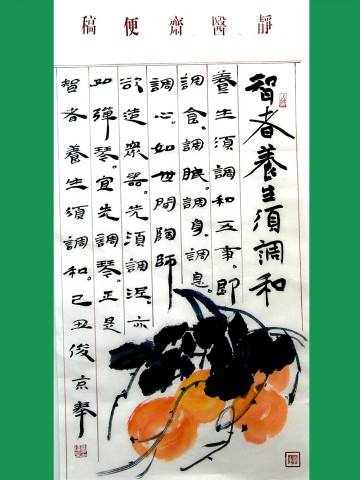 靜醫齋便稿
智者養生須調和
養生須調和五事。即
調食。調眠。調身。調息。
調心。如世間陶師
欲造衆器。先須調泥。亦
如彈琴。宜先調琴。正是
智者養生須調和。己丑俊京奉